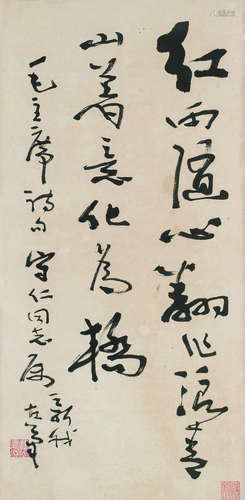 红雨随心翻作浪青
山着意化为桥
毛主席诗句 守仁同志属